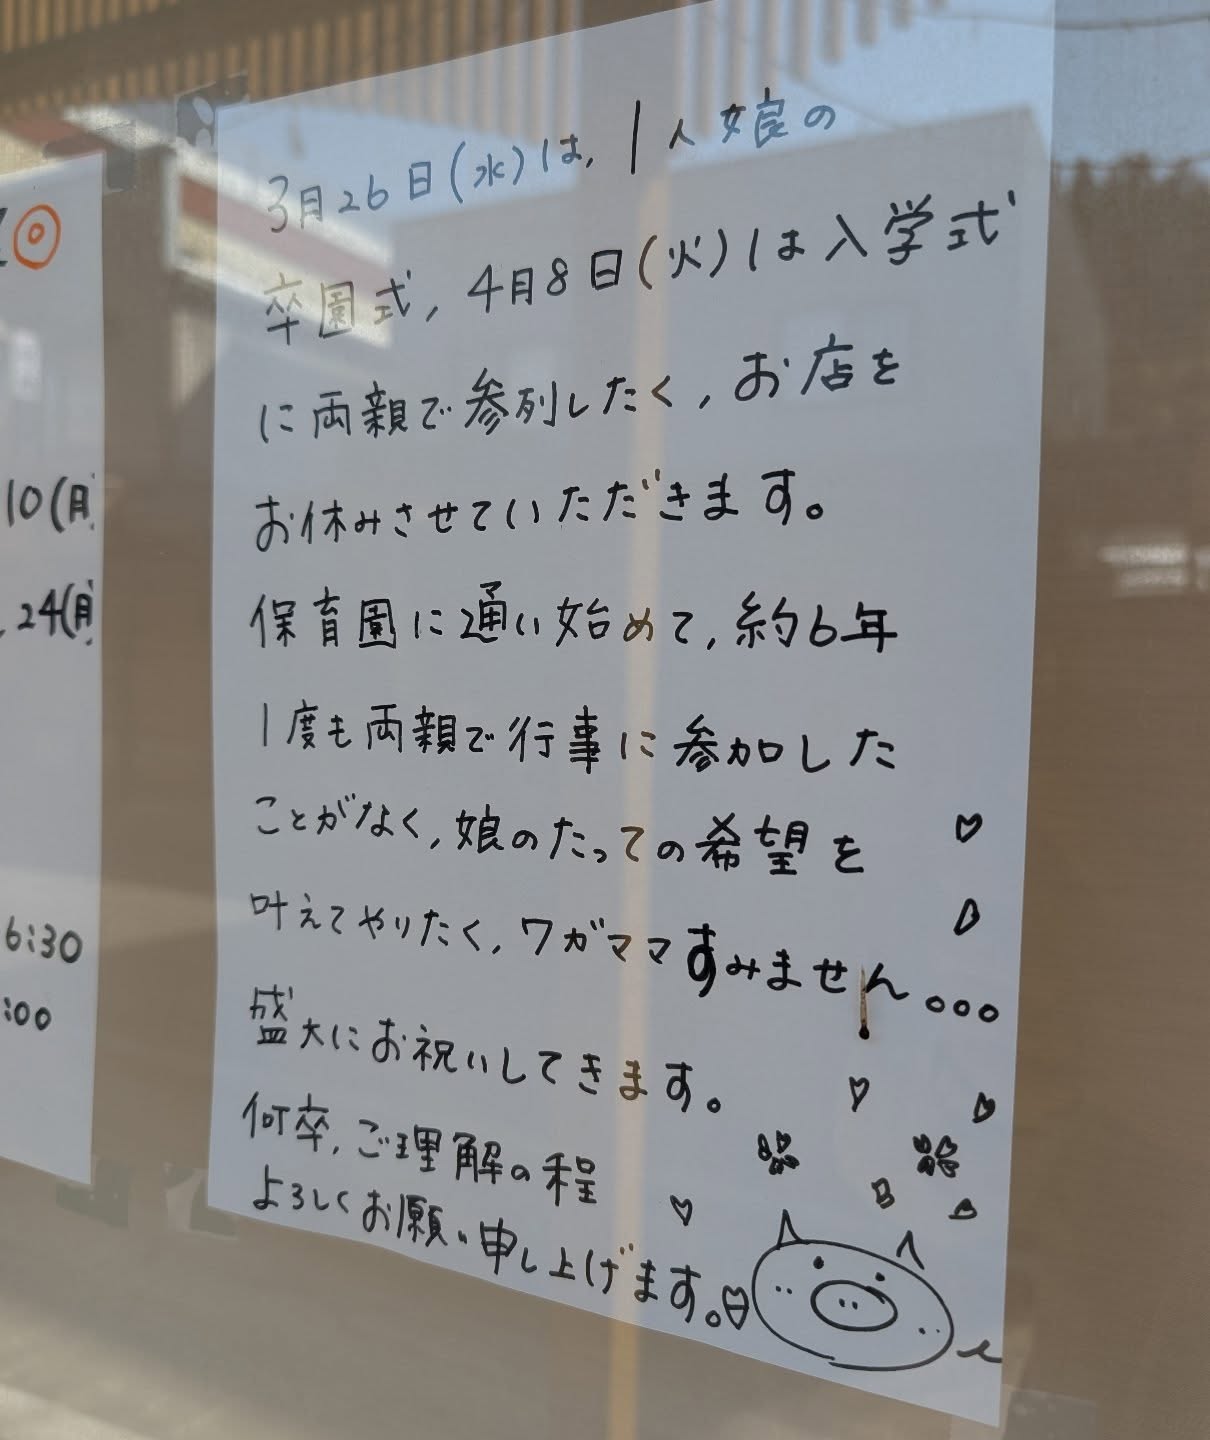 ◎
10(月)
24(月)
6:30
:00
3月26日(水)は、1人娘の
卒園式、4月8日(火)は入学式
に両親で参列したく、お店を
お休みさせていただきます。
保育園に通い始めて、約6年
1度も両親で行事に参加した
ことがなく、娘のたっての希望を
叶えてやりたく、ワガママすみません。。。
盛大にお祝いしてきます。
何卒、ご理解の程
よろしくお願い申し上げます。